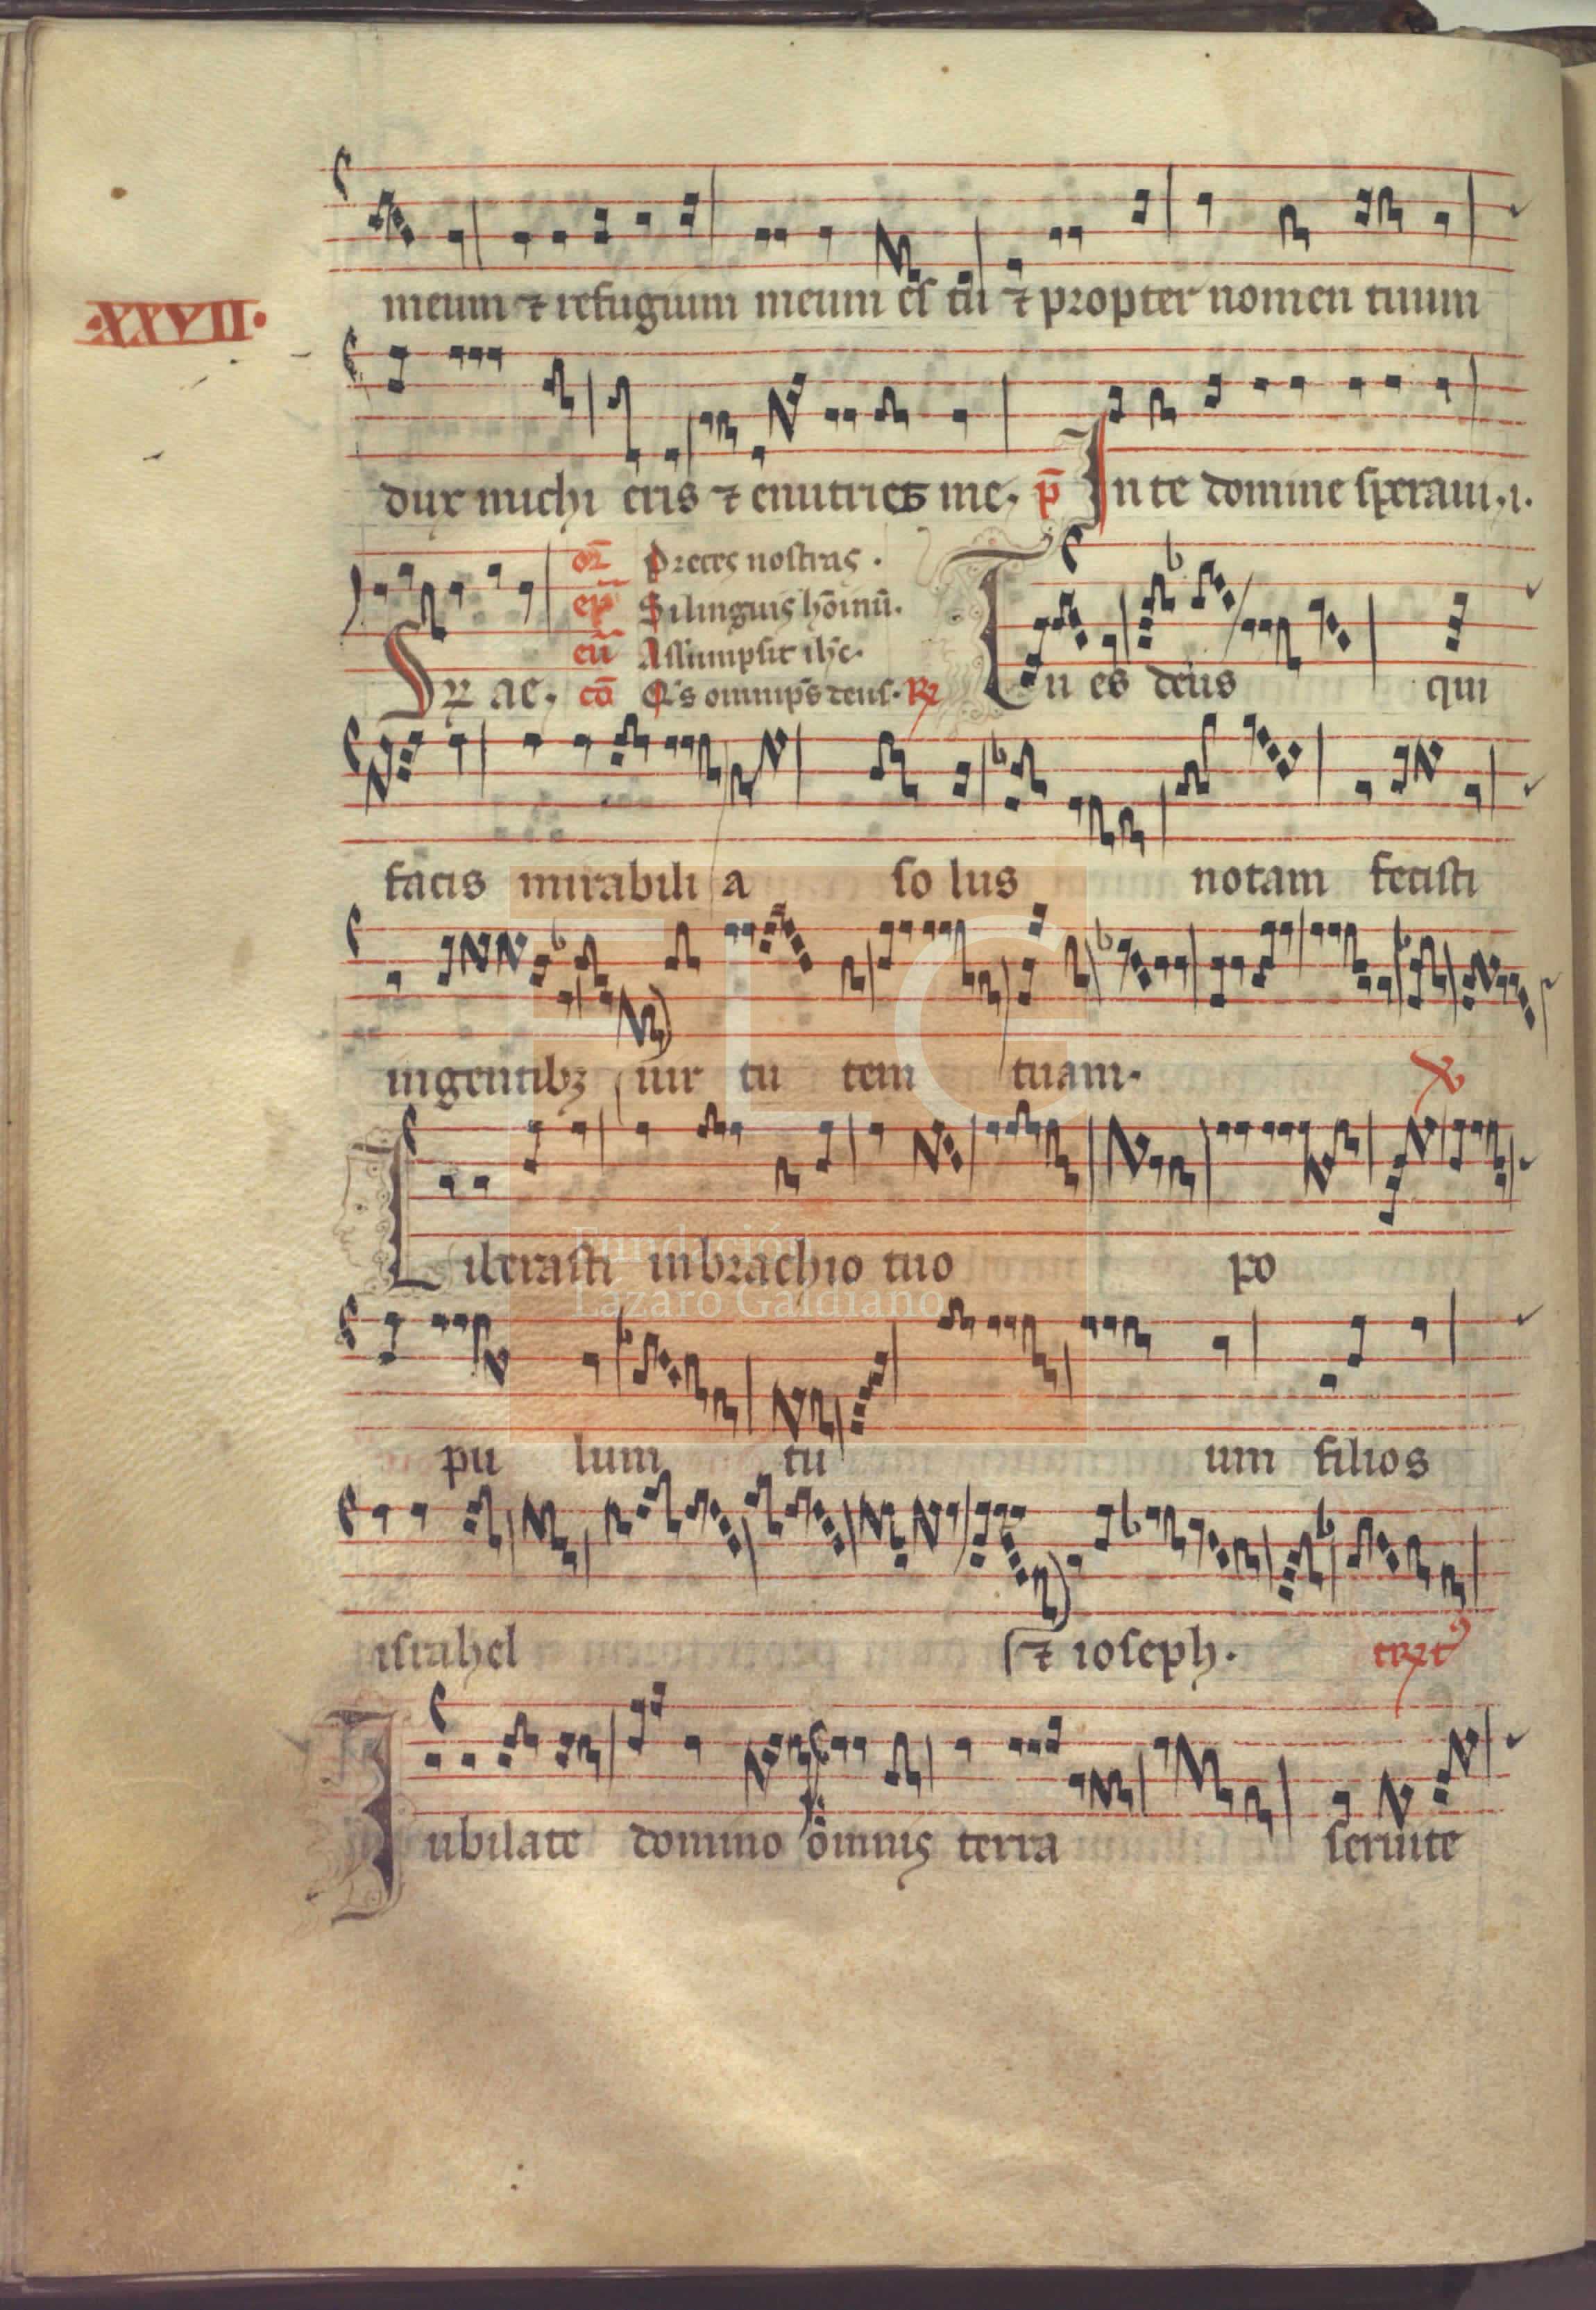 meum ⁊ refugium meum es tu ⁊ propter nomen tuum
·XXVII·
dux michi eris ⁊ enutries me. p̄ In te domine speraui. i.
or̄ Preces nostras.
ep̄ Si linguis hoīnū.
eū Assumpsit ih̄c.
Gr̄ ae. cō Q's omnip̄s deus. R̷ Tu es deus qui
facis mirabilia solus notam fecisti
ingentibꝫ uirtutem tuam. ℣
Liberasti inbrachio tuo po
pulum tuum filios
israhel ⁊ ioseph. tr̄ct᷒
Iubilate domino omnis terra seruite
Fundación
Lázaro Galdiano